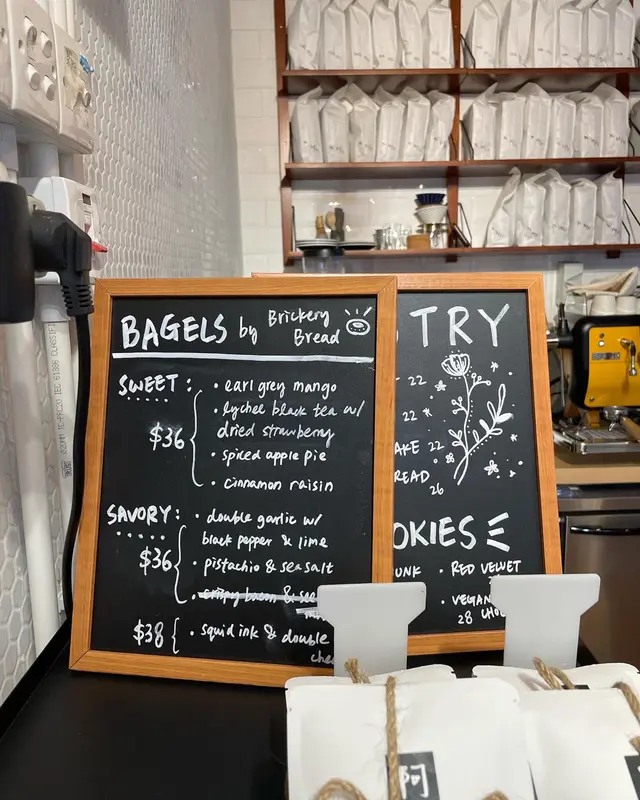 BAGELS by Brickery
Bread
SWEET :
$36
• earl grey mango
• lychee black tea w/
dried strawberry
• spiced apple pie
• cinnamon raisin
SAVORY :
$36
• double garlic w/
black pepper & lime
• pistachio & sea salt
• crispy bacon & see
$38 { • squid ink & double
che
TRY
22
22
AKE 22
READ
26
OKIES
UNK • RED VELVET
• VEGAN
28 CHO
阿